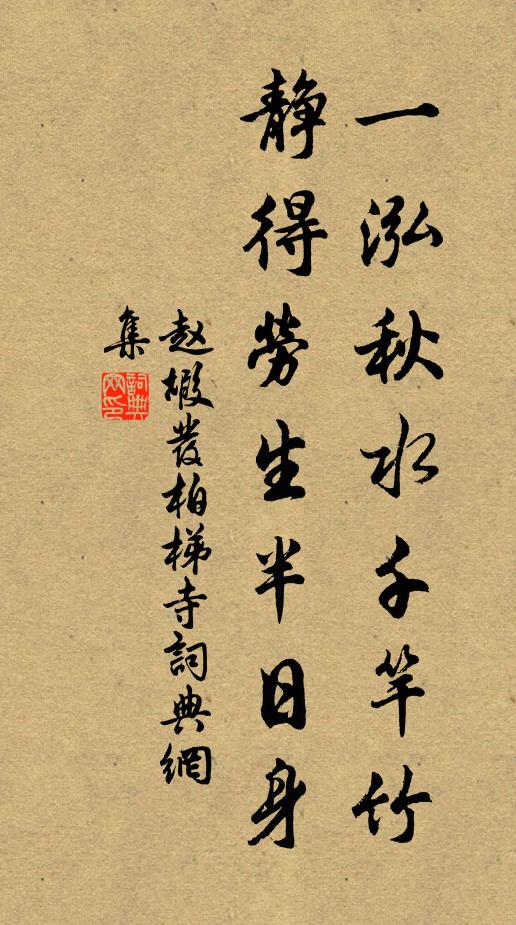 一泓秋水千竿竹
静得勞生半日身
赵嘏發柏梯寺詞典網
集
詞典網印